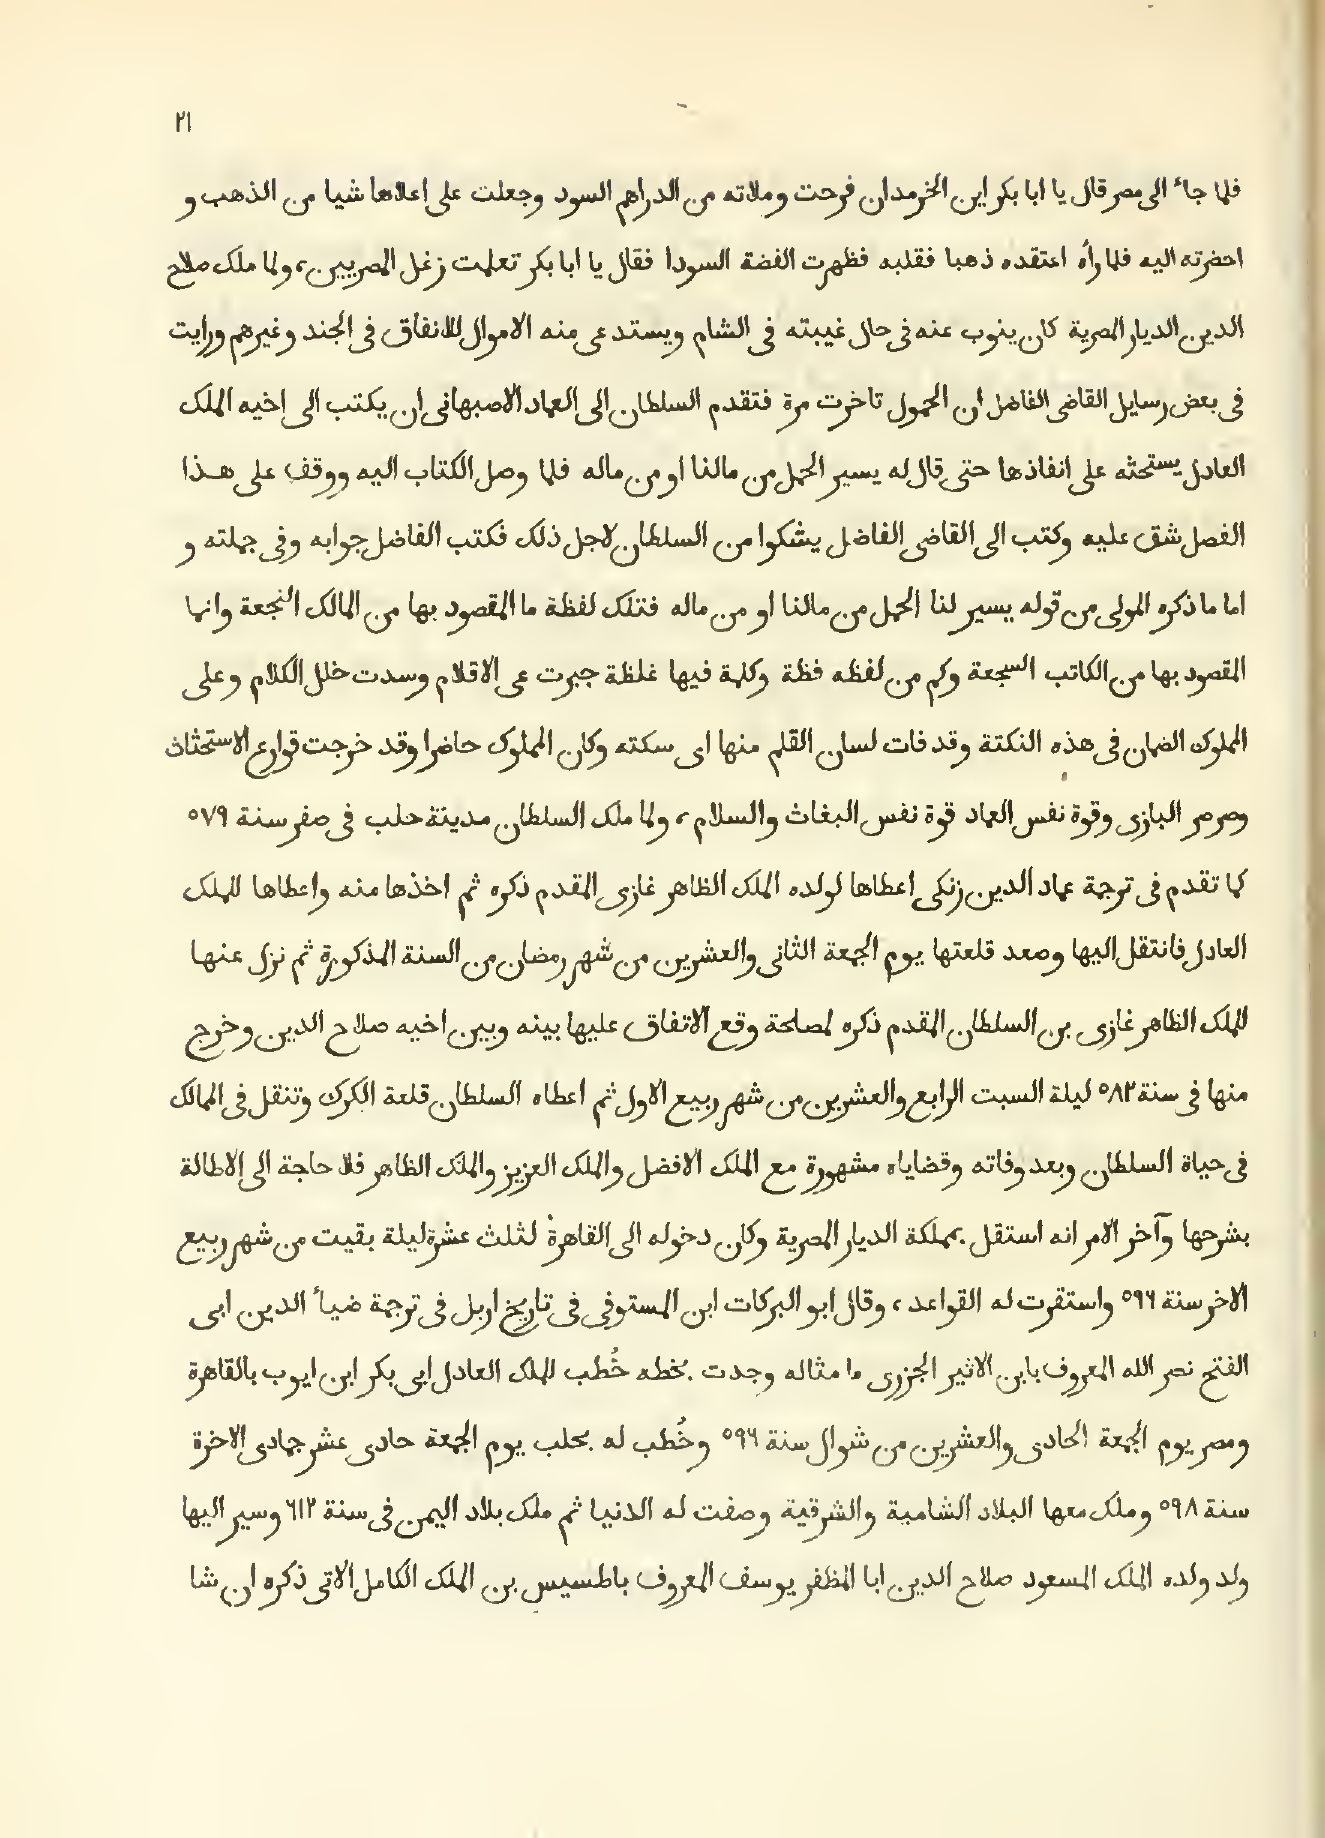 ٢١
فلما جاء الى مصر قال يا ابا بكر اين الخرمدان فرحت وملاته من الدراهم السود وجعلت على اعلاها شيا من الذهب و
احضرته اليه فلما رأه اعتقده ذهبا فقلبه فظهرت الفضة السودا فقال يا ابا بكر تعلمت زغل المصريين، ولما ملك صلاح
الدين الديار المصرية كان ينوب عنه فى حال غيبته فى الشام ويستدعى منه الاموال للانفاق فى الجند وغيرهم ورايت
فى بعض رسايل القاضى الفاضل ان الحمول تاخرت مرة فتقدم السلطان الى العماد الاصبهانى ان يكتب الى اخيه الملك
العادل يستحثه على انفاذها حتى قال له يسير الحمل من مالنا او من ماله فلما وصل الكتاب اليه ووقف على هذا
الفصل شق عليه وكتب الى القاضى الفاضل يشكوا من السلطان لاجل ذلك فكتب الفاضل جوابه وفى جملته و
اما ما ذكره المولى من قوله يسير لنا الحمل من مالنا او من ماله فتلك لفظة ما المقصود بها من المالك النجعة وانما
المقصود بها من الكاتب السجعة وكم من لفظه فظة وكلمة فيها غلظة جبرت عى الاقلام وسدت خلل الكلام وعلى
المملوك الضمان فى هذه النكتة وقد فات لسان القلم منها اى سكته وكان المملوك حاضرا وقد خرجت قوارع الاستحثاث
وصرصر البازى وقوة نفس العماد قوة نفس البغاث والسلام، ولما ملك السلطان مدينة حلب فى صفر سنة ٥٧٩
كما تقدم فى ترجمة عماد الدين زنكى اعطاها لولده الملك الظاهر غازى المقدم ذكره ثم اخذها منه واعطاها للملك
العادل فانتقل اليها وصعد قلعتها يوم الجمعة الثانى والعشرين من شهر رمضان من السنة المذكورة ثم نزل عنها
للملك الظاهر غازى بن السلطان المقدم ذكره لمصلحة وقع الاتفاق عليها بينه وبين اخيه صلاح الدين وخرج
منها فى سنة ٥٨٢ ليلة السبت الرابع والعشرين من شهر ربيع الاول ثم اعطاه السلطان قلعة الكرك وتنقل فى الممالك
فى حياة السلطان وبعد وفاته وقضاياه مشهورة مع الملك الافضل والملك العزيز والملك الظاهر فلا حاجة الى الاطالة
بشرحها وآخر الامر انه استقل بمملكة الديار المصرية وكان دخوله الى القاهرة لثلث عشرة ليلة بقيت من شهر ربيع
الاخر سنة ٥٩٦ واستقرت له القواعد، وقال ابو البركات ابن المستوفى فى تاريخ اربل فى ترجمة ضياء الدين ابى
الفتح نصر الله المعروف بابن الاثير الجزرى ما مثاله وجدت بخطه خُطب للملك العادل ابى بكر ابن ايوب بالقاهرة
ومصر يوم الجمعة الحادى والعشرين من شوال سنة ٥٩٦ وخُطب له بحلب يوم الجمعة حادى عشر جمادى الاخرة
سنة ٥٩٨ وملك معها البلاد الشامية والشرقية وصفت له الدنيا ثم ملك بلاد اليمن فى سنة ٦١٢ وسير اليها
ولد ولده الملك المسعود صلاح الدين ابا المظفر يوسف المعروف باطسيس بن الملك الكامل الاتى ذكره ان شا